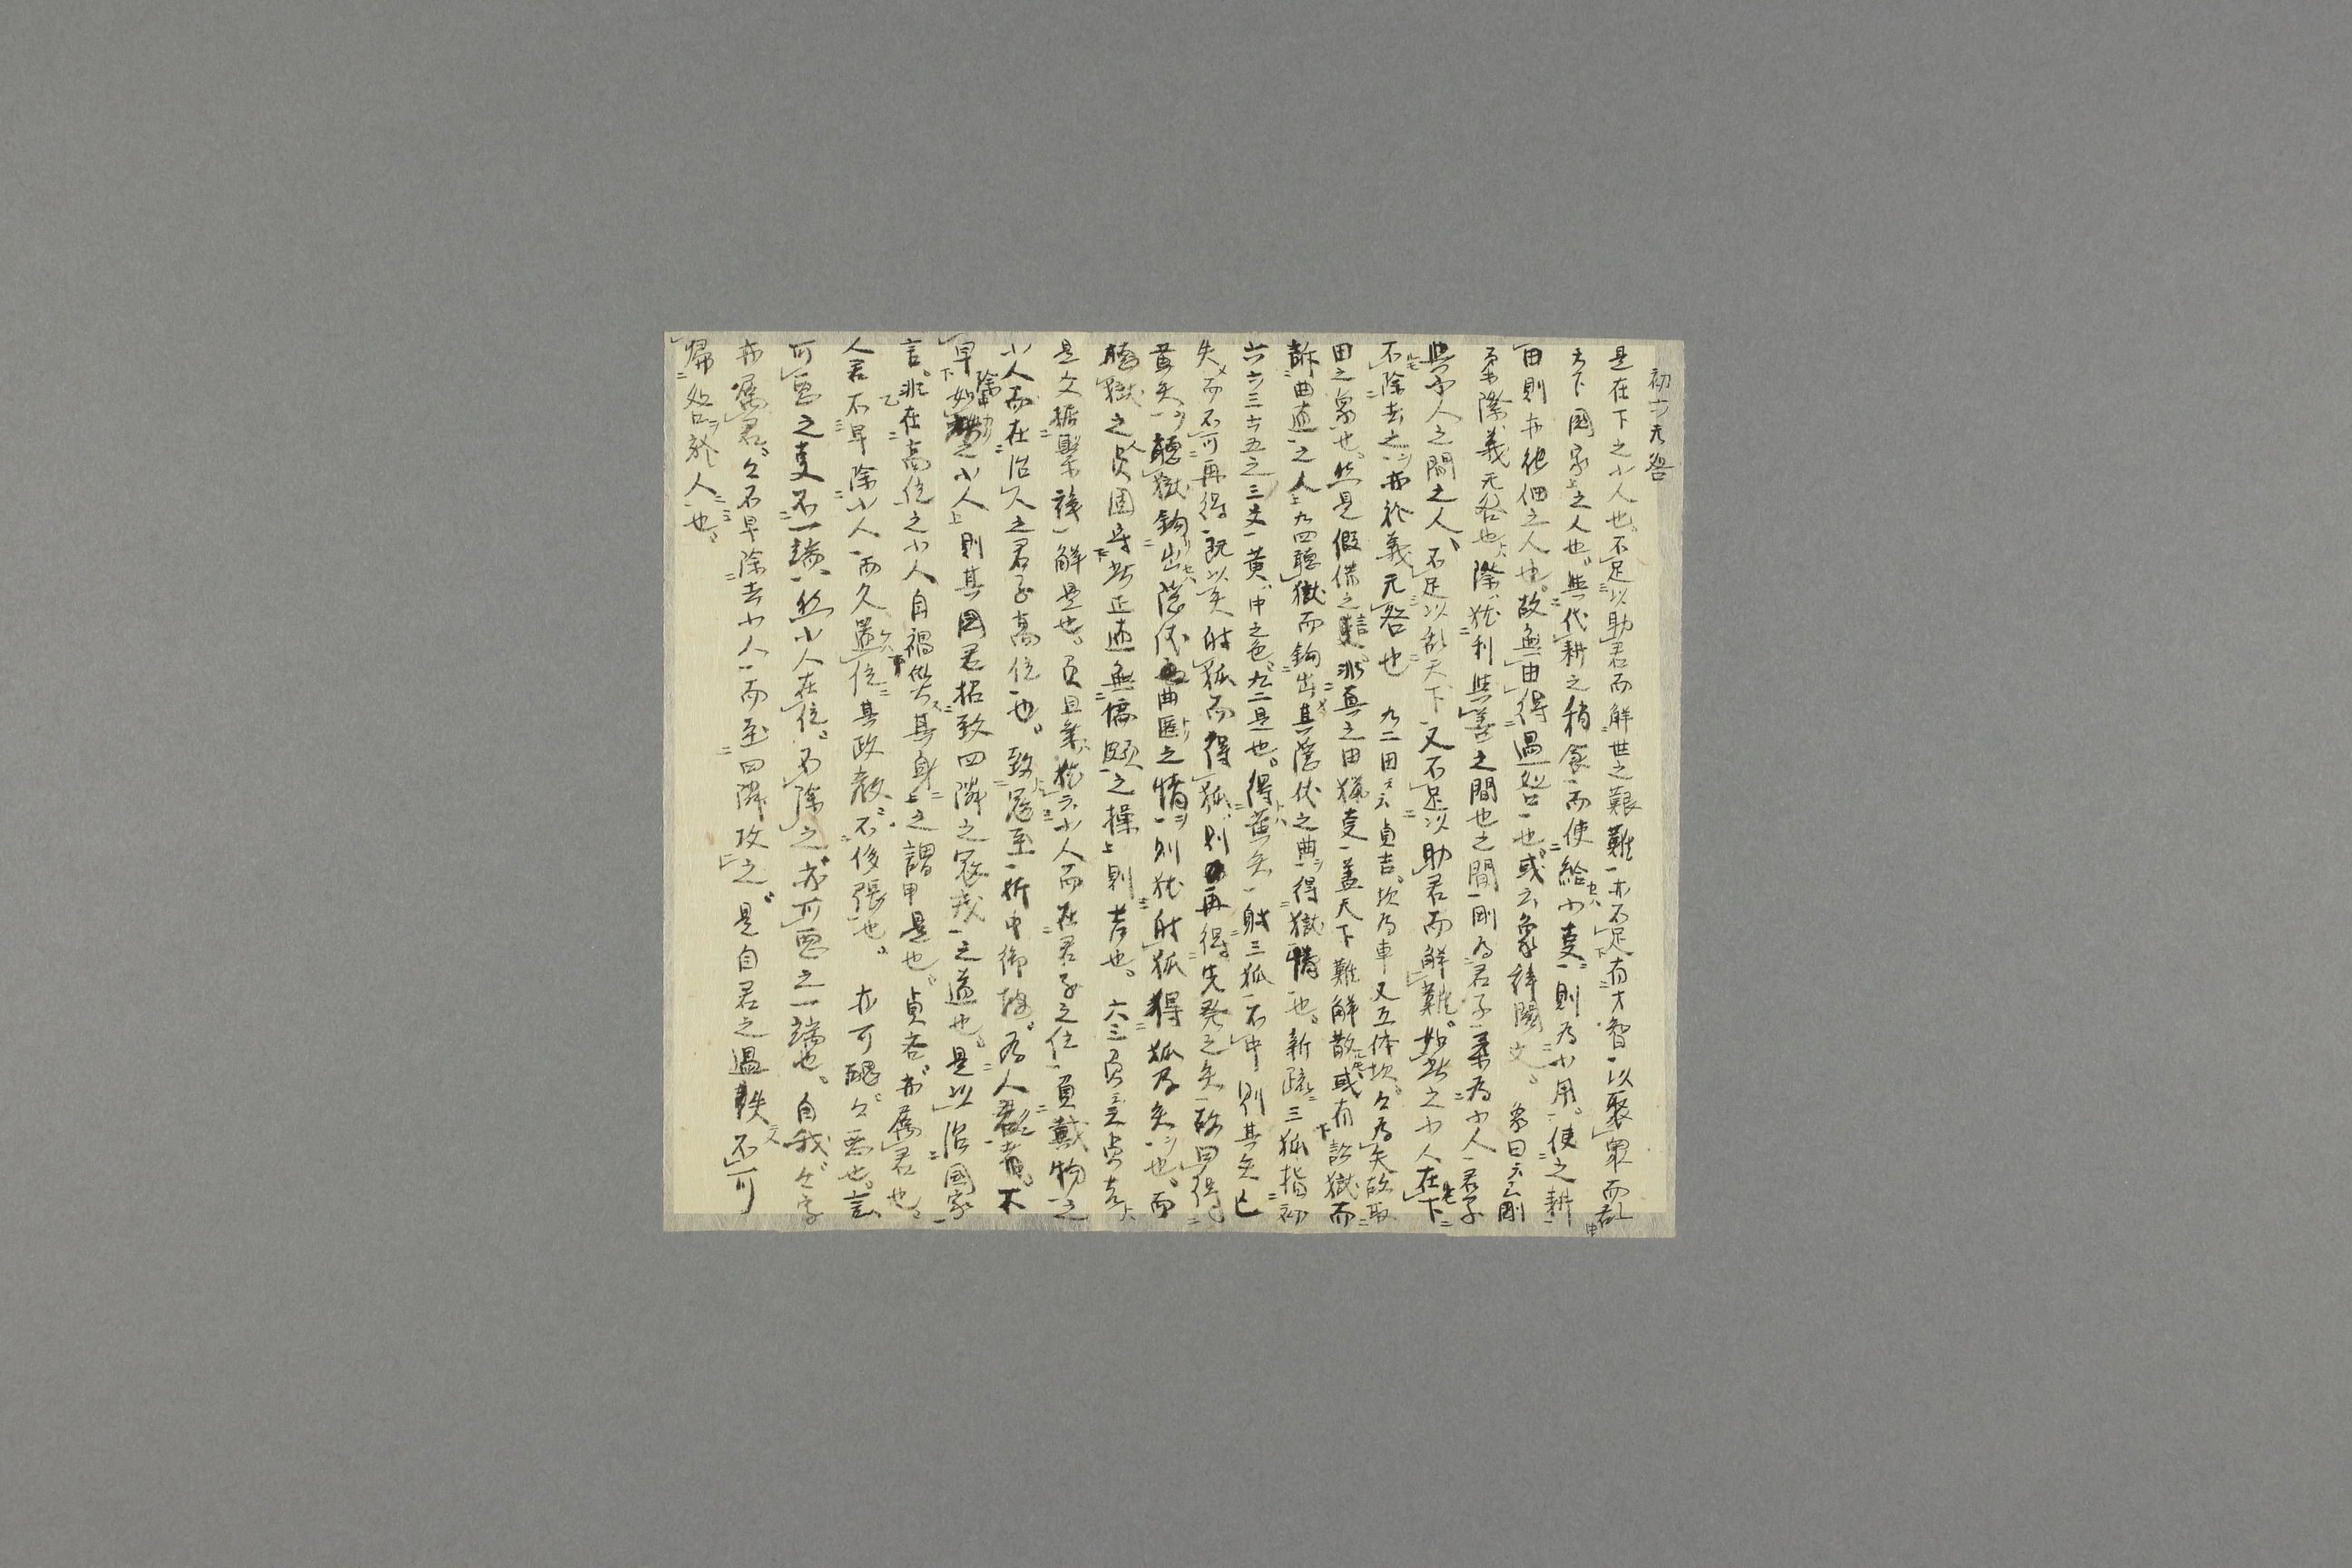 初六无咎
是在下之小人也。不足以助君而解世之艱難一亦不足有才智一以聚衆而乱
天下國家之人也。與代耕之稍食一而使給小事一則為小用。使之耕
田則亦他佃之人也。故無由得過咎一也。或云象辞闕文。 象曰云云剛
柔際義无咎也。際猶利與善之間也之間一剛為君子柔為小人一君子
與小人之間之人、不足以乱天下一又不足以助君而解難。如此之小人在下
不除去之亦於義无咎也 九二田云云貞吉。坎為車又互体坎。々為矢故取
田之象也。然是假借之 非真之田獵事一蓋天下難解散或有訟獄而
訴曲直之人九四聴獄而鉤出其隠伏之曲得獄情也。新疏三狐指初
六六三六五之三爻一黄中之色。九二是也。得黄矢一射三狐一不中則其矢已
失而不可再得一既以矢射狐而得狐則再得先発之矢一故曰得
黄矢聴獄鉤出隠伏曲匿之情一則猶射狐得狐及矢也。而
聴獄之人貞固守此正直無偏頗之操則吉也。 六三負 至貞吝
是文據繋 解是也。負且乗猶云小人而在君子之位一負戴物之
小人而在治人之君子高位一也。致寇至一折中御 。為人君者。不
早如除 小人則其國君招致四隣之寇戎一之道也。是以治國家
言。非在高位之小人自禍 其身之謂是也。貞吝亦属君也
人君不早除小人一而久置位其政教不修張也。 亦可醜々悪也。言
可悪之事不一端然小人在位。不除之亦可悪之一端也。自我々字
亦属君。々不早除去小人一而至四隣攻之。是自君之過 不可
帰咎於人也。